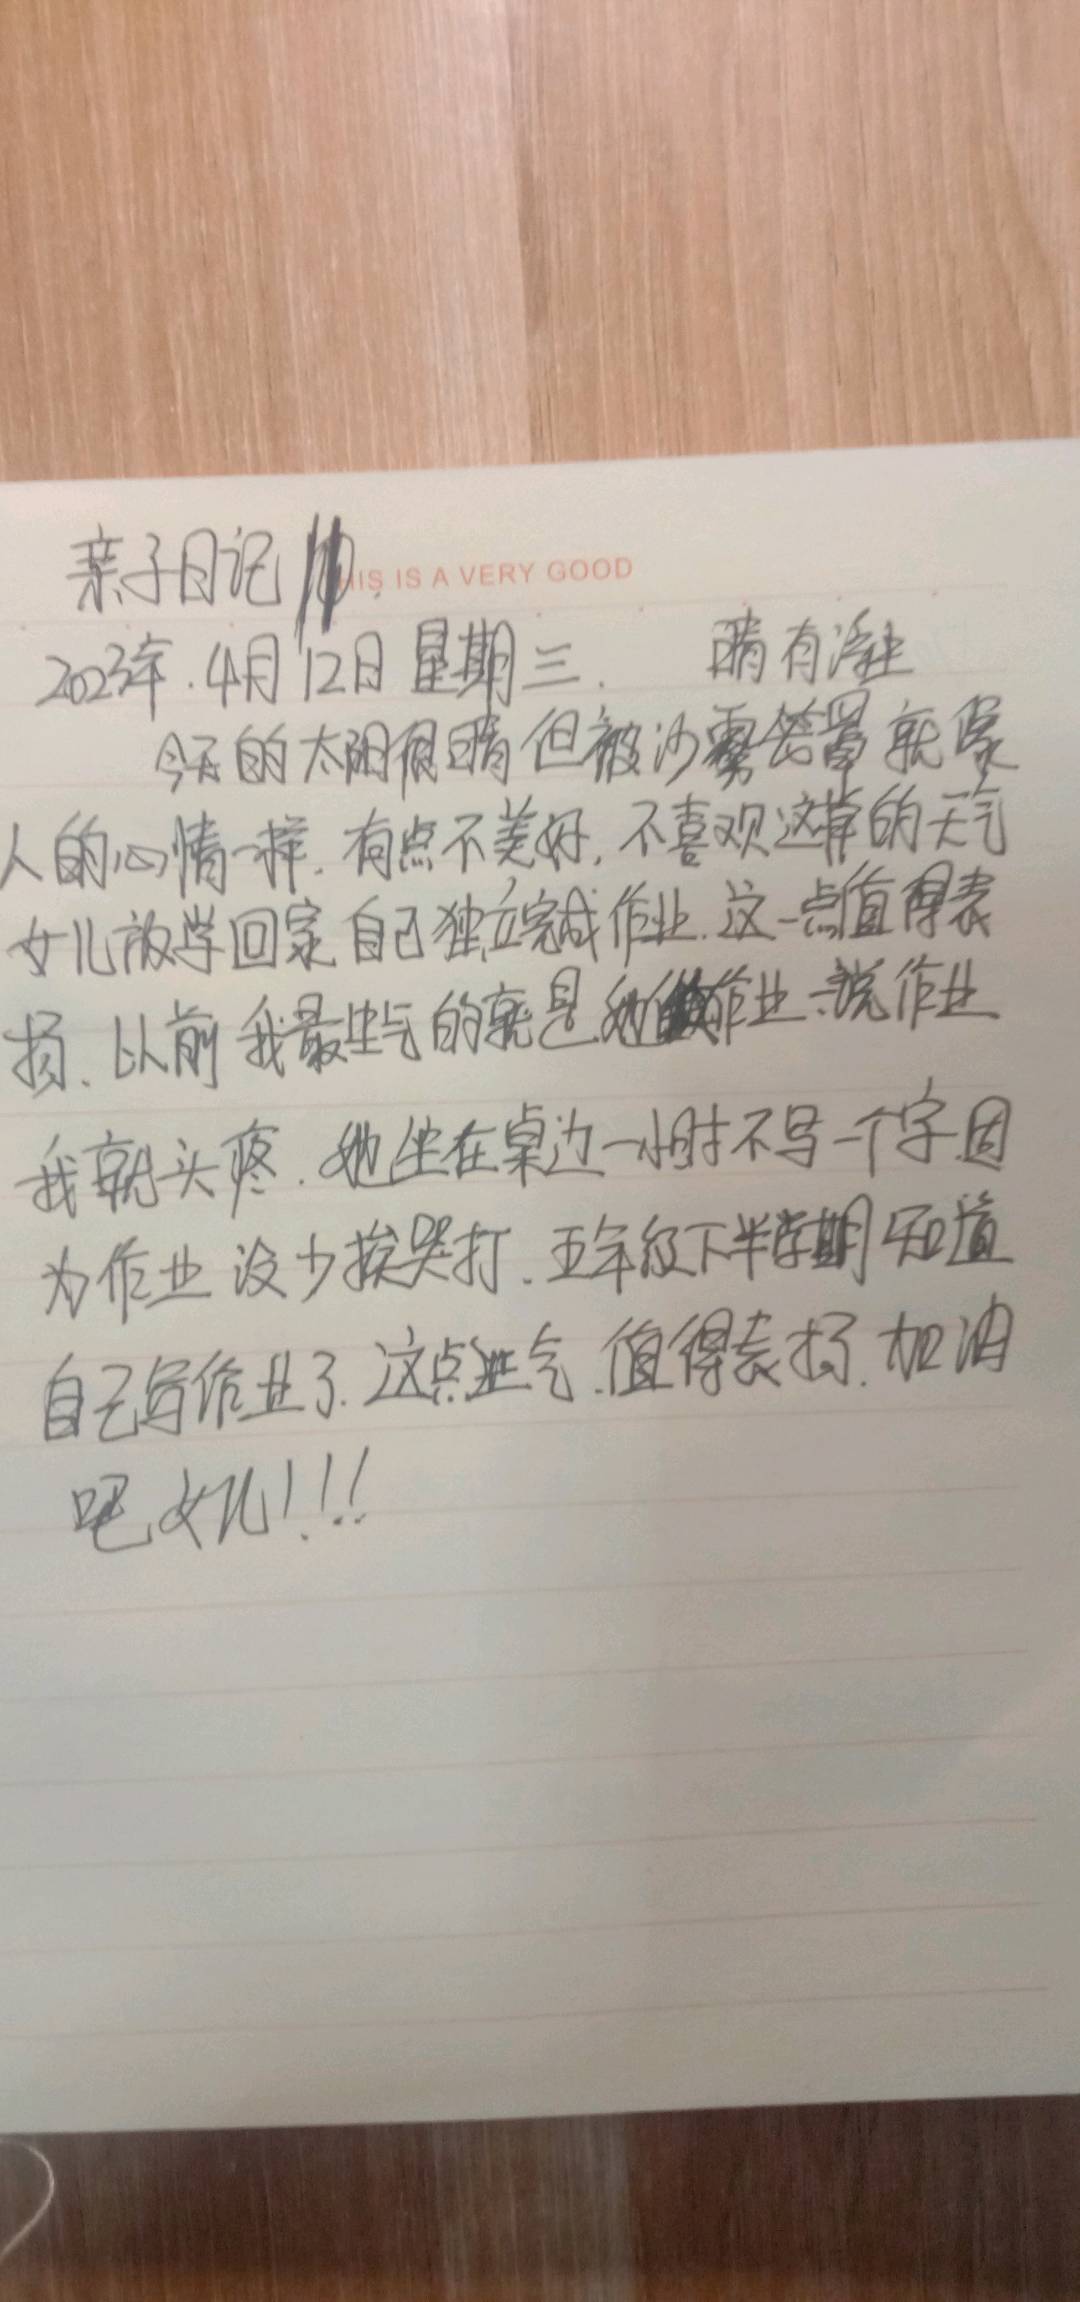 亲子日记
HIS IS A VERY GOOD
2023年.4月12日星期三. 晴有浮尘
今天的太阳很晴但被沙雾笼罩就像
人的心情一样.有点不美好,不喜欢这样的天气
女儿放学回家自己独立完成作业.这一点值得表
扬、以前我最生气的就是她做作业、说作业
我就头疼.她坐在桌边一小时不写一个字.因
为作业没少挨哭打.五年级下半学期知道
自己写作业了.这点争气.值得表扬.加油
吧女儿!!!